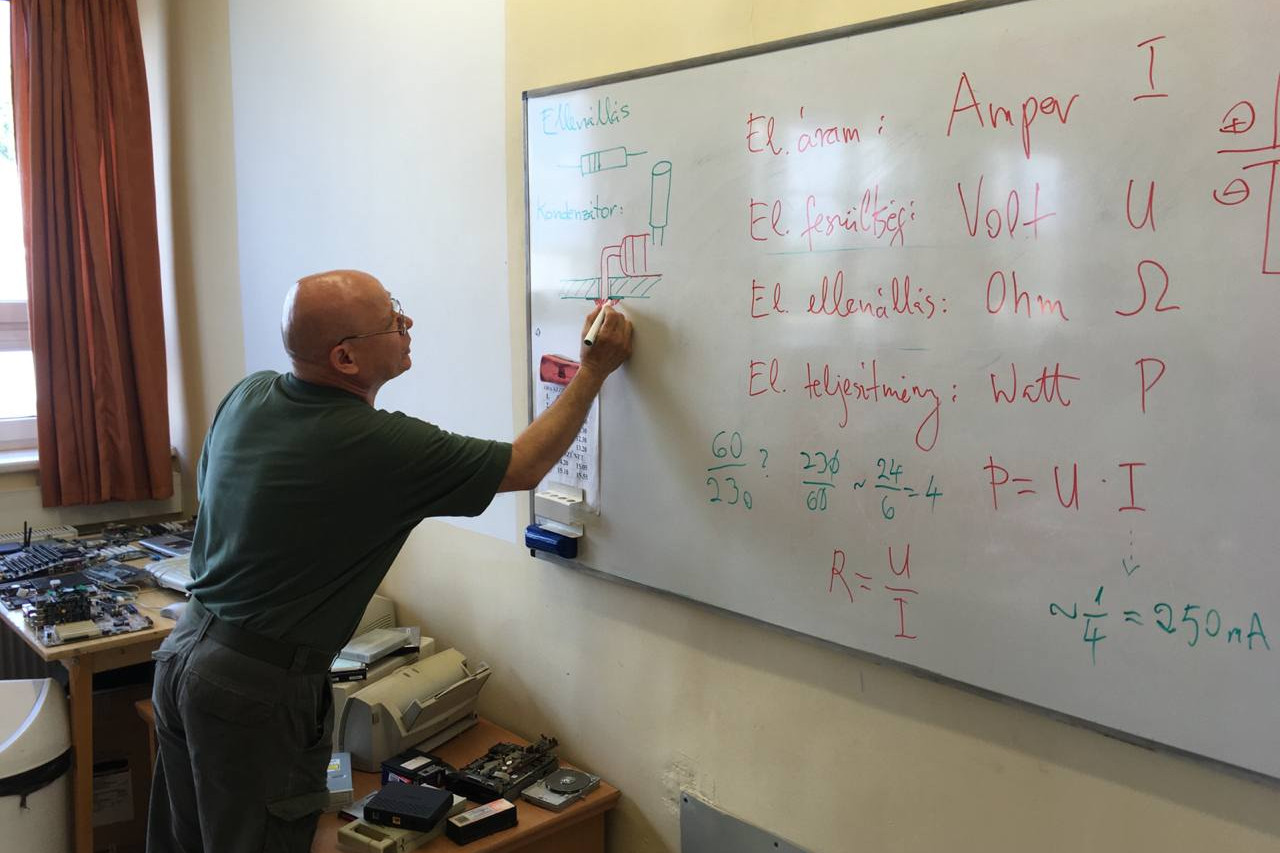 Ellenállás
Kondenzátor:
El. áram: Amper I
El. feszültség: Volt U
El. ellenállás: Ohm Ω
El. teljesítmény: Watt P
60/230 ? 230/60 ~ 24/6 = 4 P = U · I
R = U/I
~ 1/4 = 250 mA
+
-